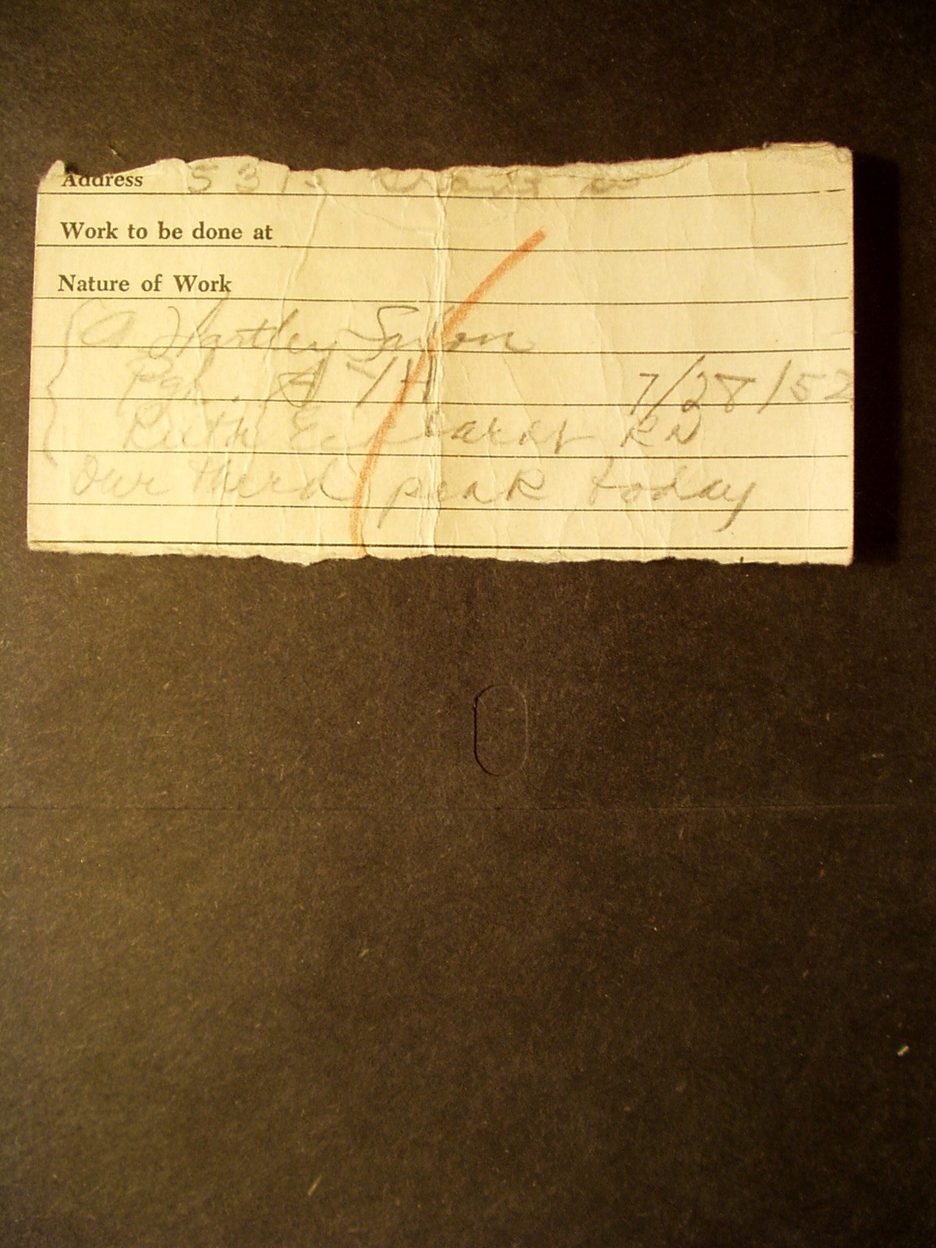 Address 531
Work to be done at
Nature of Work
A Hartley
7/28/52
Ruth Eckhardt RN
Our third peak today